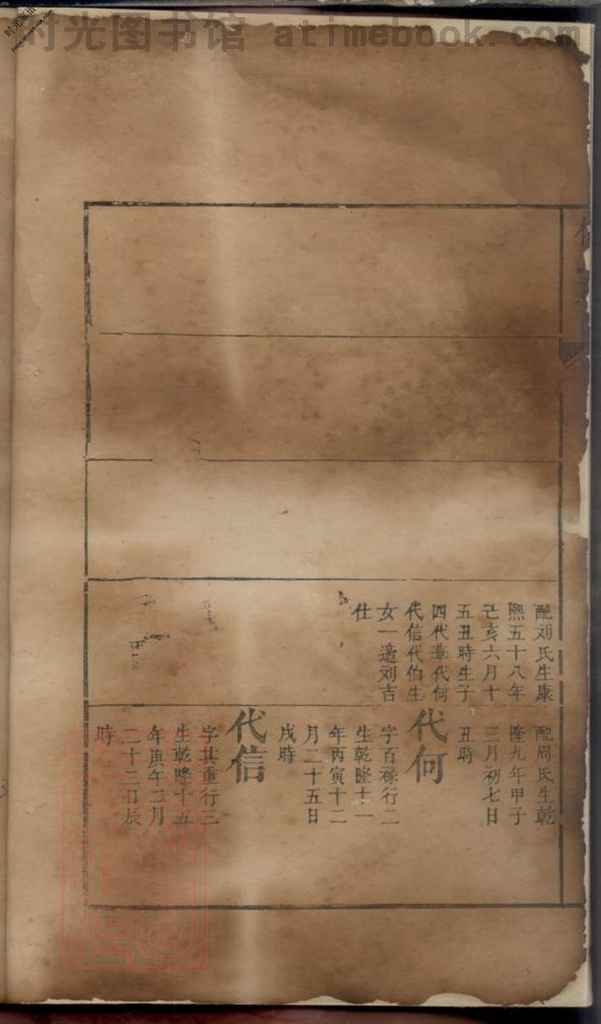 时光图书馆 atimebook.com
配刘氏生康
熙五十八年
己亥六月十
五丑時生子
四代 代何
代信代伯生
女一適刘吉
仕
配周氏生乾
隆九年甲子
三月初七日
丑時
代何
字百祿行二
生乾隆十一
年丙寅十二
月二十五日
戌時
代信
字 重行三
生乾隆十五
年庚午二月
二十二日辰
時